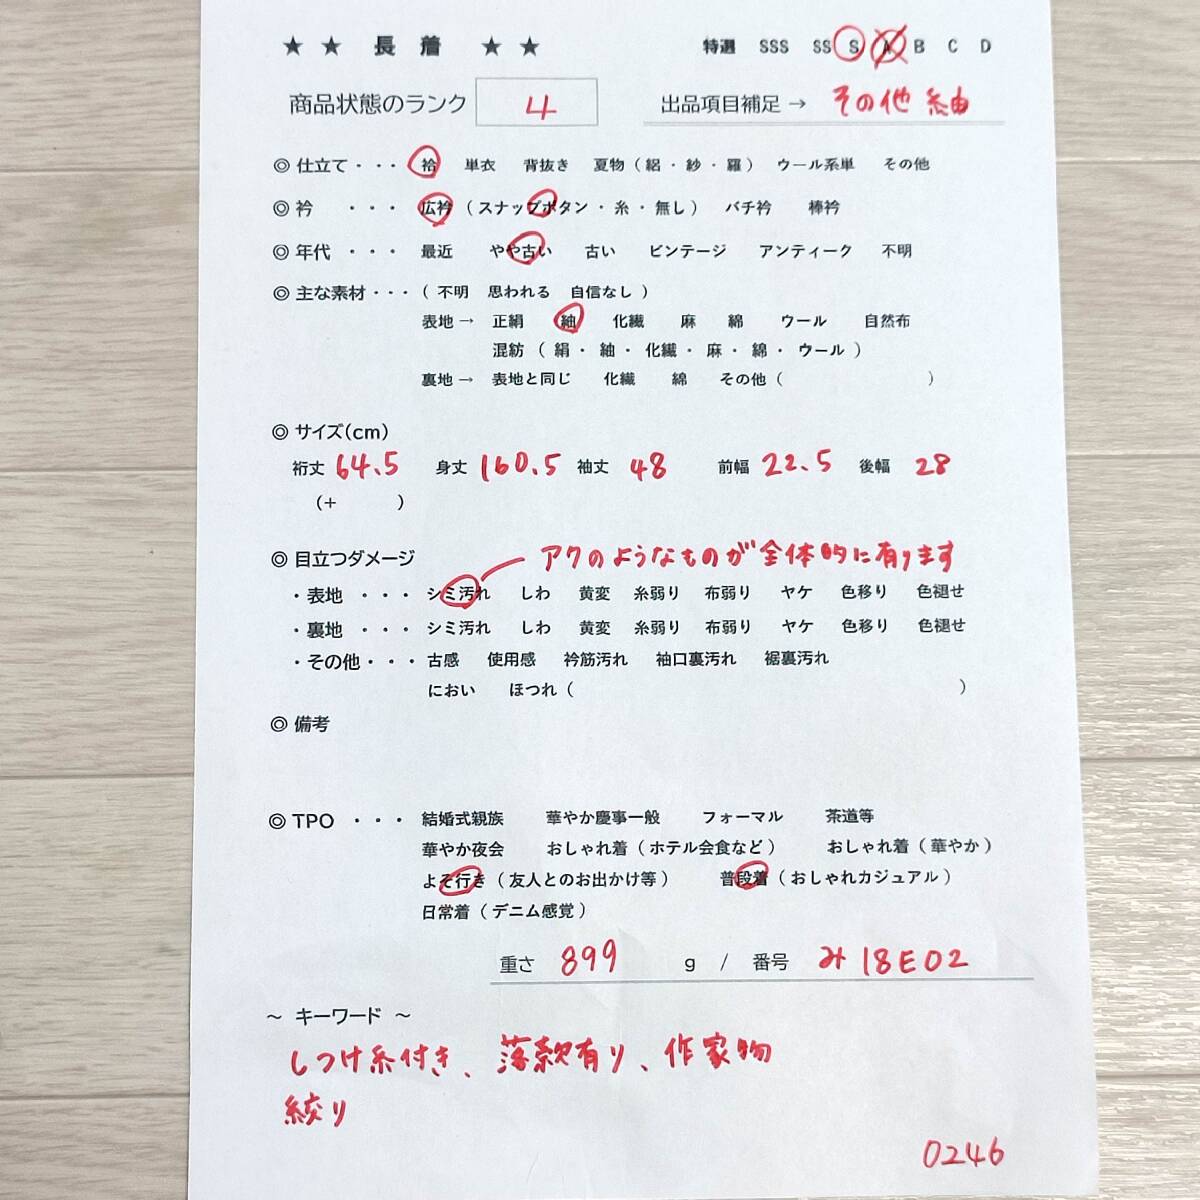 ★ ★ 長 着 ★ ★ 特選 SSS SS S A B C D
商品状態のランク 4 出品項目補足→ その他 紬
◎ 仕立て・・・ 袷 単衣 背抜き 夏物(絽・紗・羅) ウール系単 その他
◎ 衿 ・・・ 広衿(スナップボタン・糸・無し) バチ衿 棒衿
◎ 年代 ・・・ 最近 やや古い 古い ビンテージ アンティーク 不明
◎ 主な素材・・・(不明 思われる 自信なし)
表地→ 正絹 紬 化繊 麻 綿 ウール 自然布
混紡(絹・紬・化繊・麻・綿・ウール)
裏地→ 表地と同じ 化繊 綿 その他( )
◎ サイズ(cm)
裄丈 64.5 身丈 160.5 袖丈 48 前幅 22.5 後幅 28
(+ )
◎ 目立つダメージ アクのようなものが全体的に有ります
・表地 ・・・ シミ汚れ しわ 黄変 糸弱り 布弱り ヤケ 色移り 色褪せ
・裏地 ・・・ シミ汚れ しわ 黄変 糸弱り 布弱り ヤケ 色移り 色褪せ
・その他・・・ 古感 使用感 衿筋汚れ 袖口裏汚れ 裾裏汚れ
におい ほつれ( )
◎ 備考
◎ TPO ・・・ 結婚式親族 華やか慶事一般 フォーマル 茶道等
華やか夜会 おしゃれ着(ホテル会食など) おしゃれ着(華やか)
よそ行き(友人とのお出かけ等) 普段着(おしゃれカジュアル)
日常着(デニム感覚)
重さ 899 g / 番号 み18E02
～ キーワード ～
しつけ糸付き、落款有り、作家物
絞り
0246